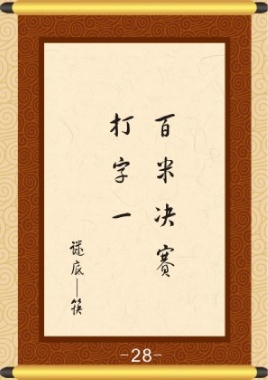 百米决赛
打字一
谜底——筷
-28-